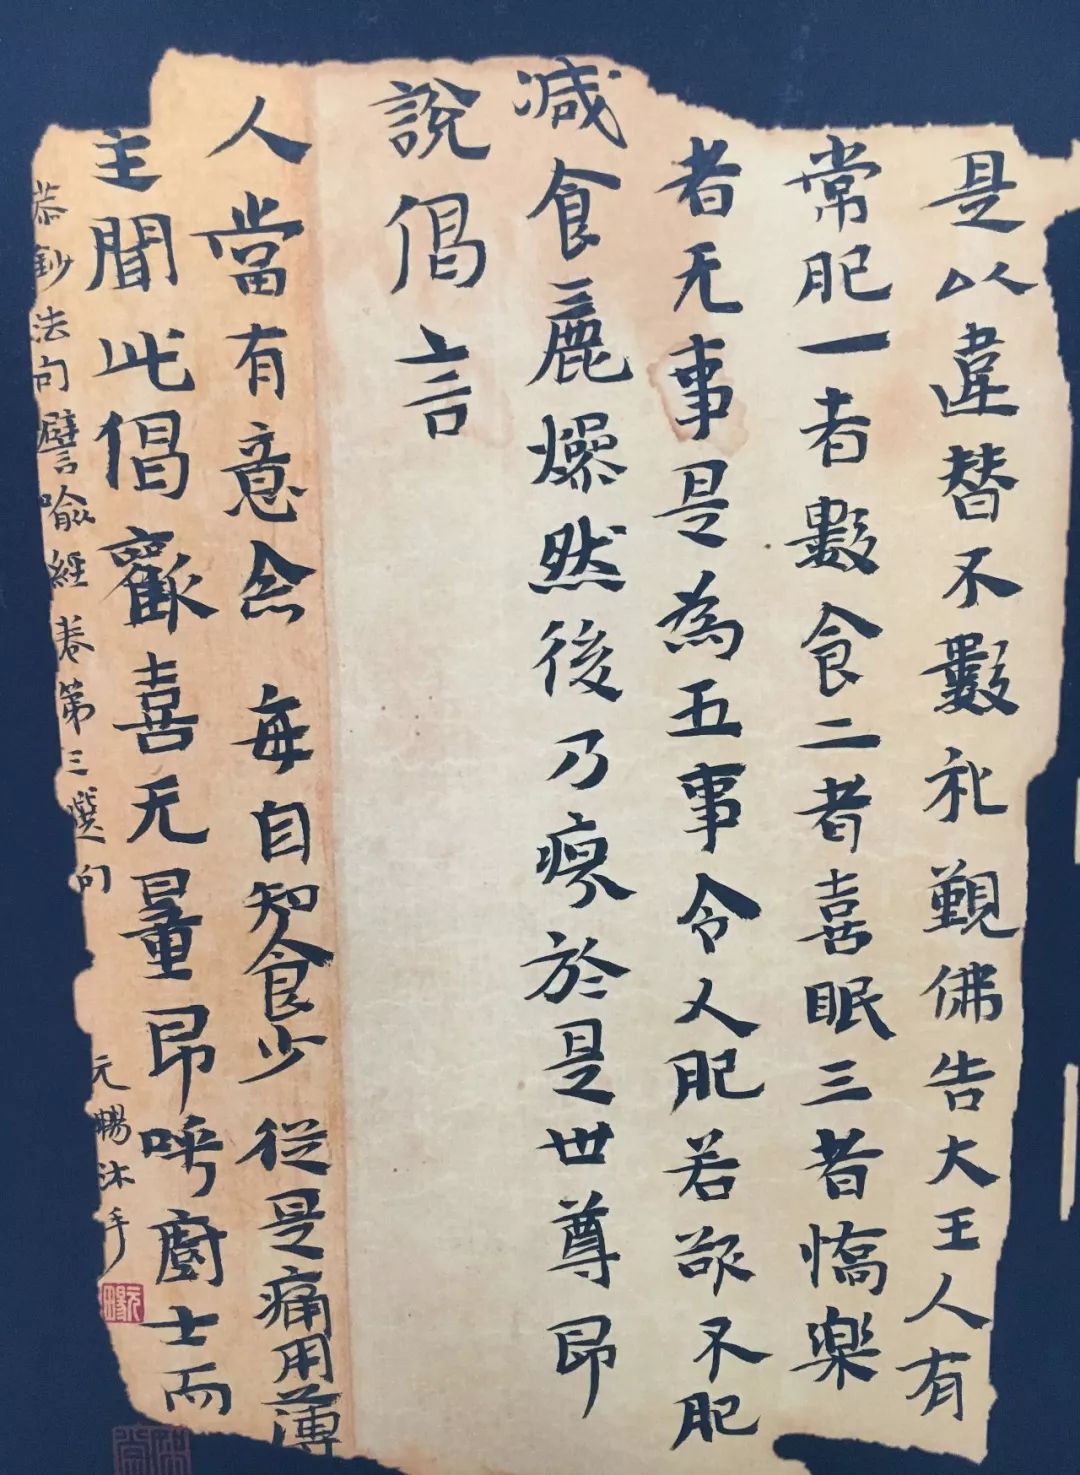 是以違替不數礼覲佛告大王人有
常肥一者數食二者喜眠三者憍樂
者无事是為五事令人肥若欲不肥
減食麁燥然後乃瘦於是世尊即
說偈言
人當有意念 每自知食少 從是痛用薄
主聞此偈歡喜无量即呼廚士而
恭鈔法句譬喻經卷第三選句 元暘沐手
元暘